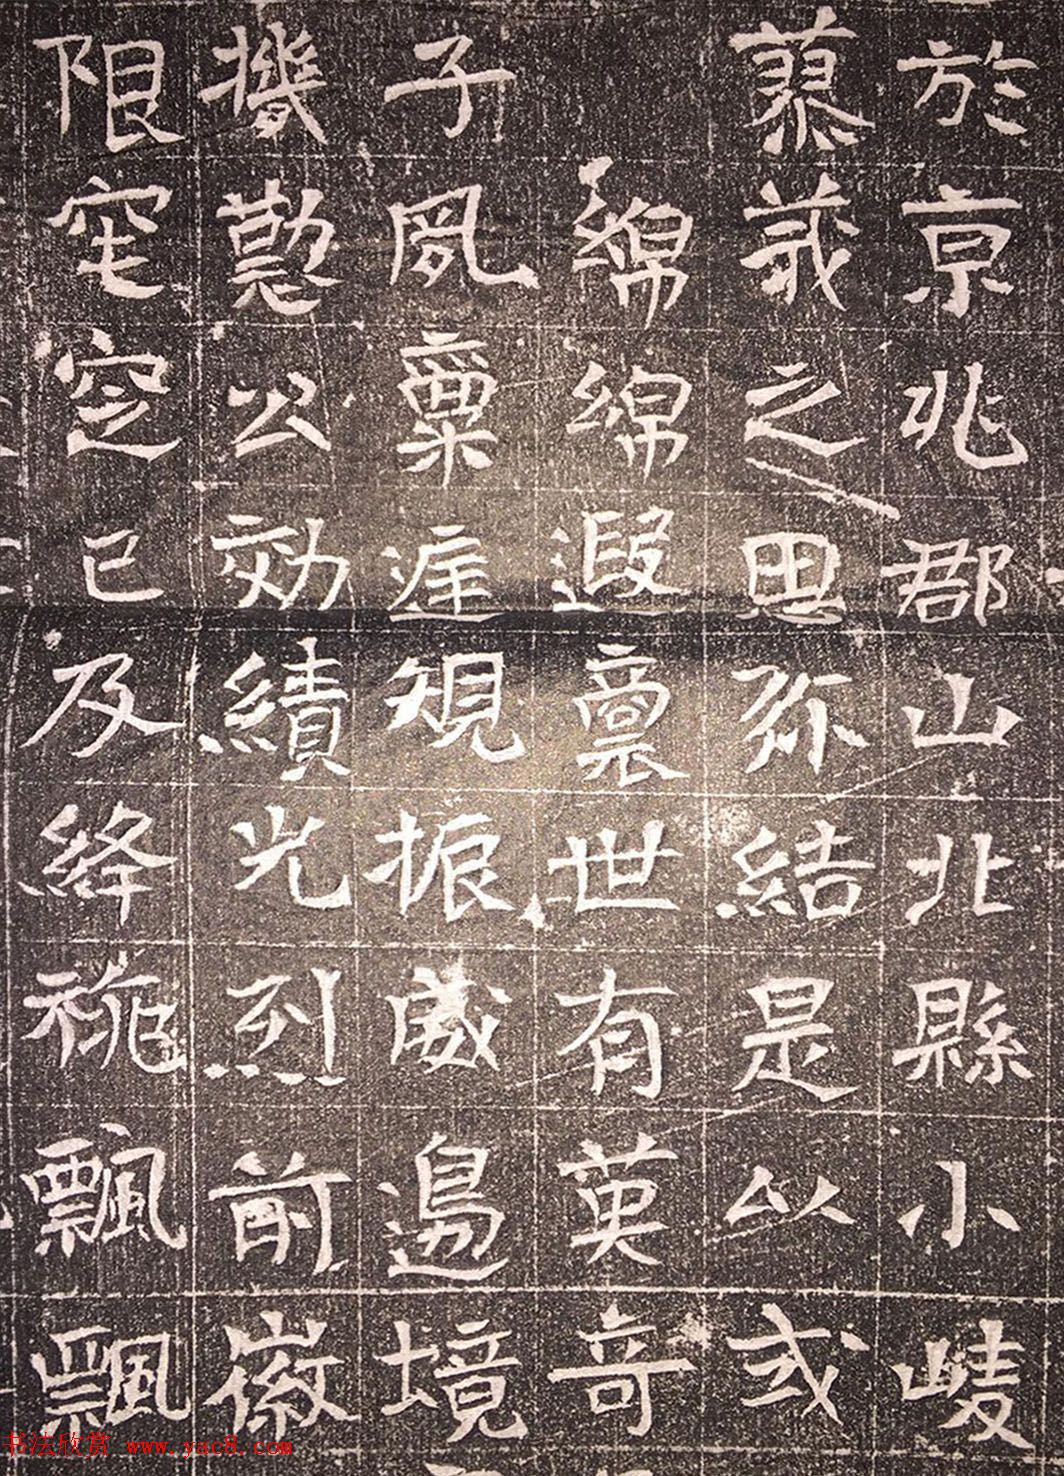 於京兆郡山北縣小崚
慕義之思弥結是以或
綿綿遐裔世有英奇
子夙稟遲規振威邊境
機懃公効績光烈前徽
限窀穸已及絳旐飄飄
书法欣赏 www.yac8.com